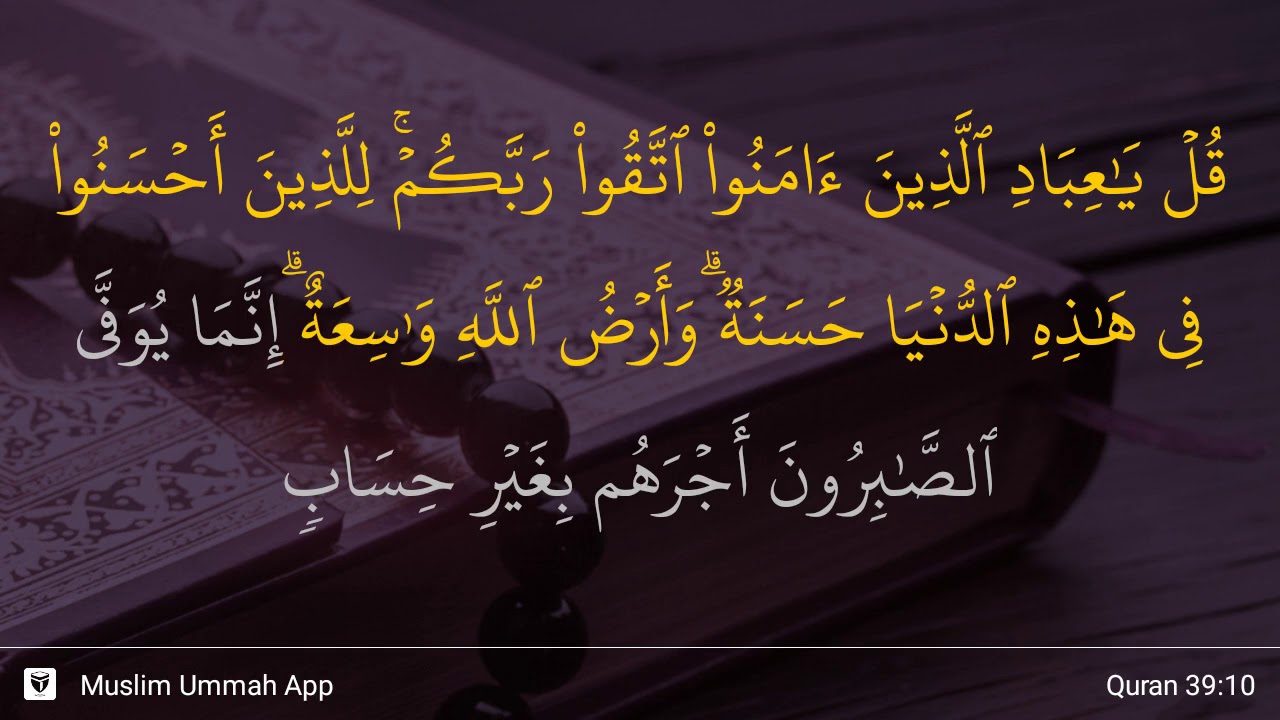 قُلۡ يَـٰعِبَادِ ٱلَّذِينَ ءَامَنُوا۟ ٱتَّقُوا۟ رَبَّكُمۡۚ لِلَّذِينَ أَحۡسَنُوا۟
فِى هَـٰذِهِ ٱلدُّنۡيَا حَسَنَةٌۗ وَأَرۡضُ ٱللَّهِ وَٰسِعَةٌۗ إِنَّمَا يُوَفَّى
ٱلصَّـٰبِرُونَ أَجۡرَهُم بِغَيۡرِ حِسَابٍ
Muslim Ummah App
Quran 39:10